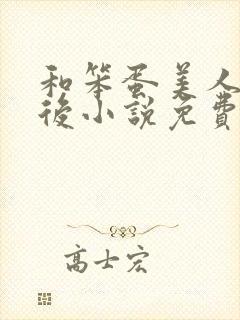 和笨蛋美人
後小說免費
高士宏